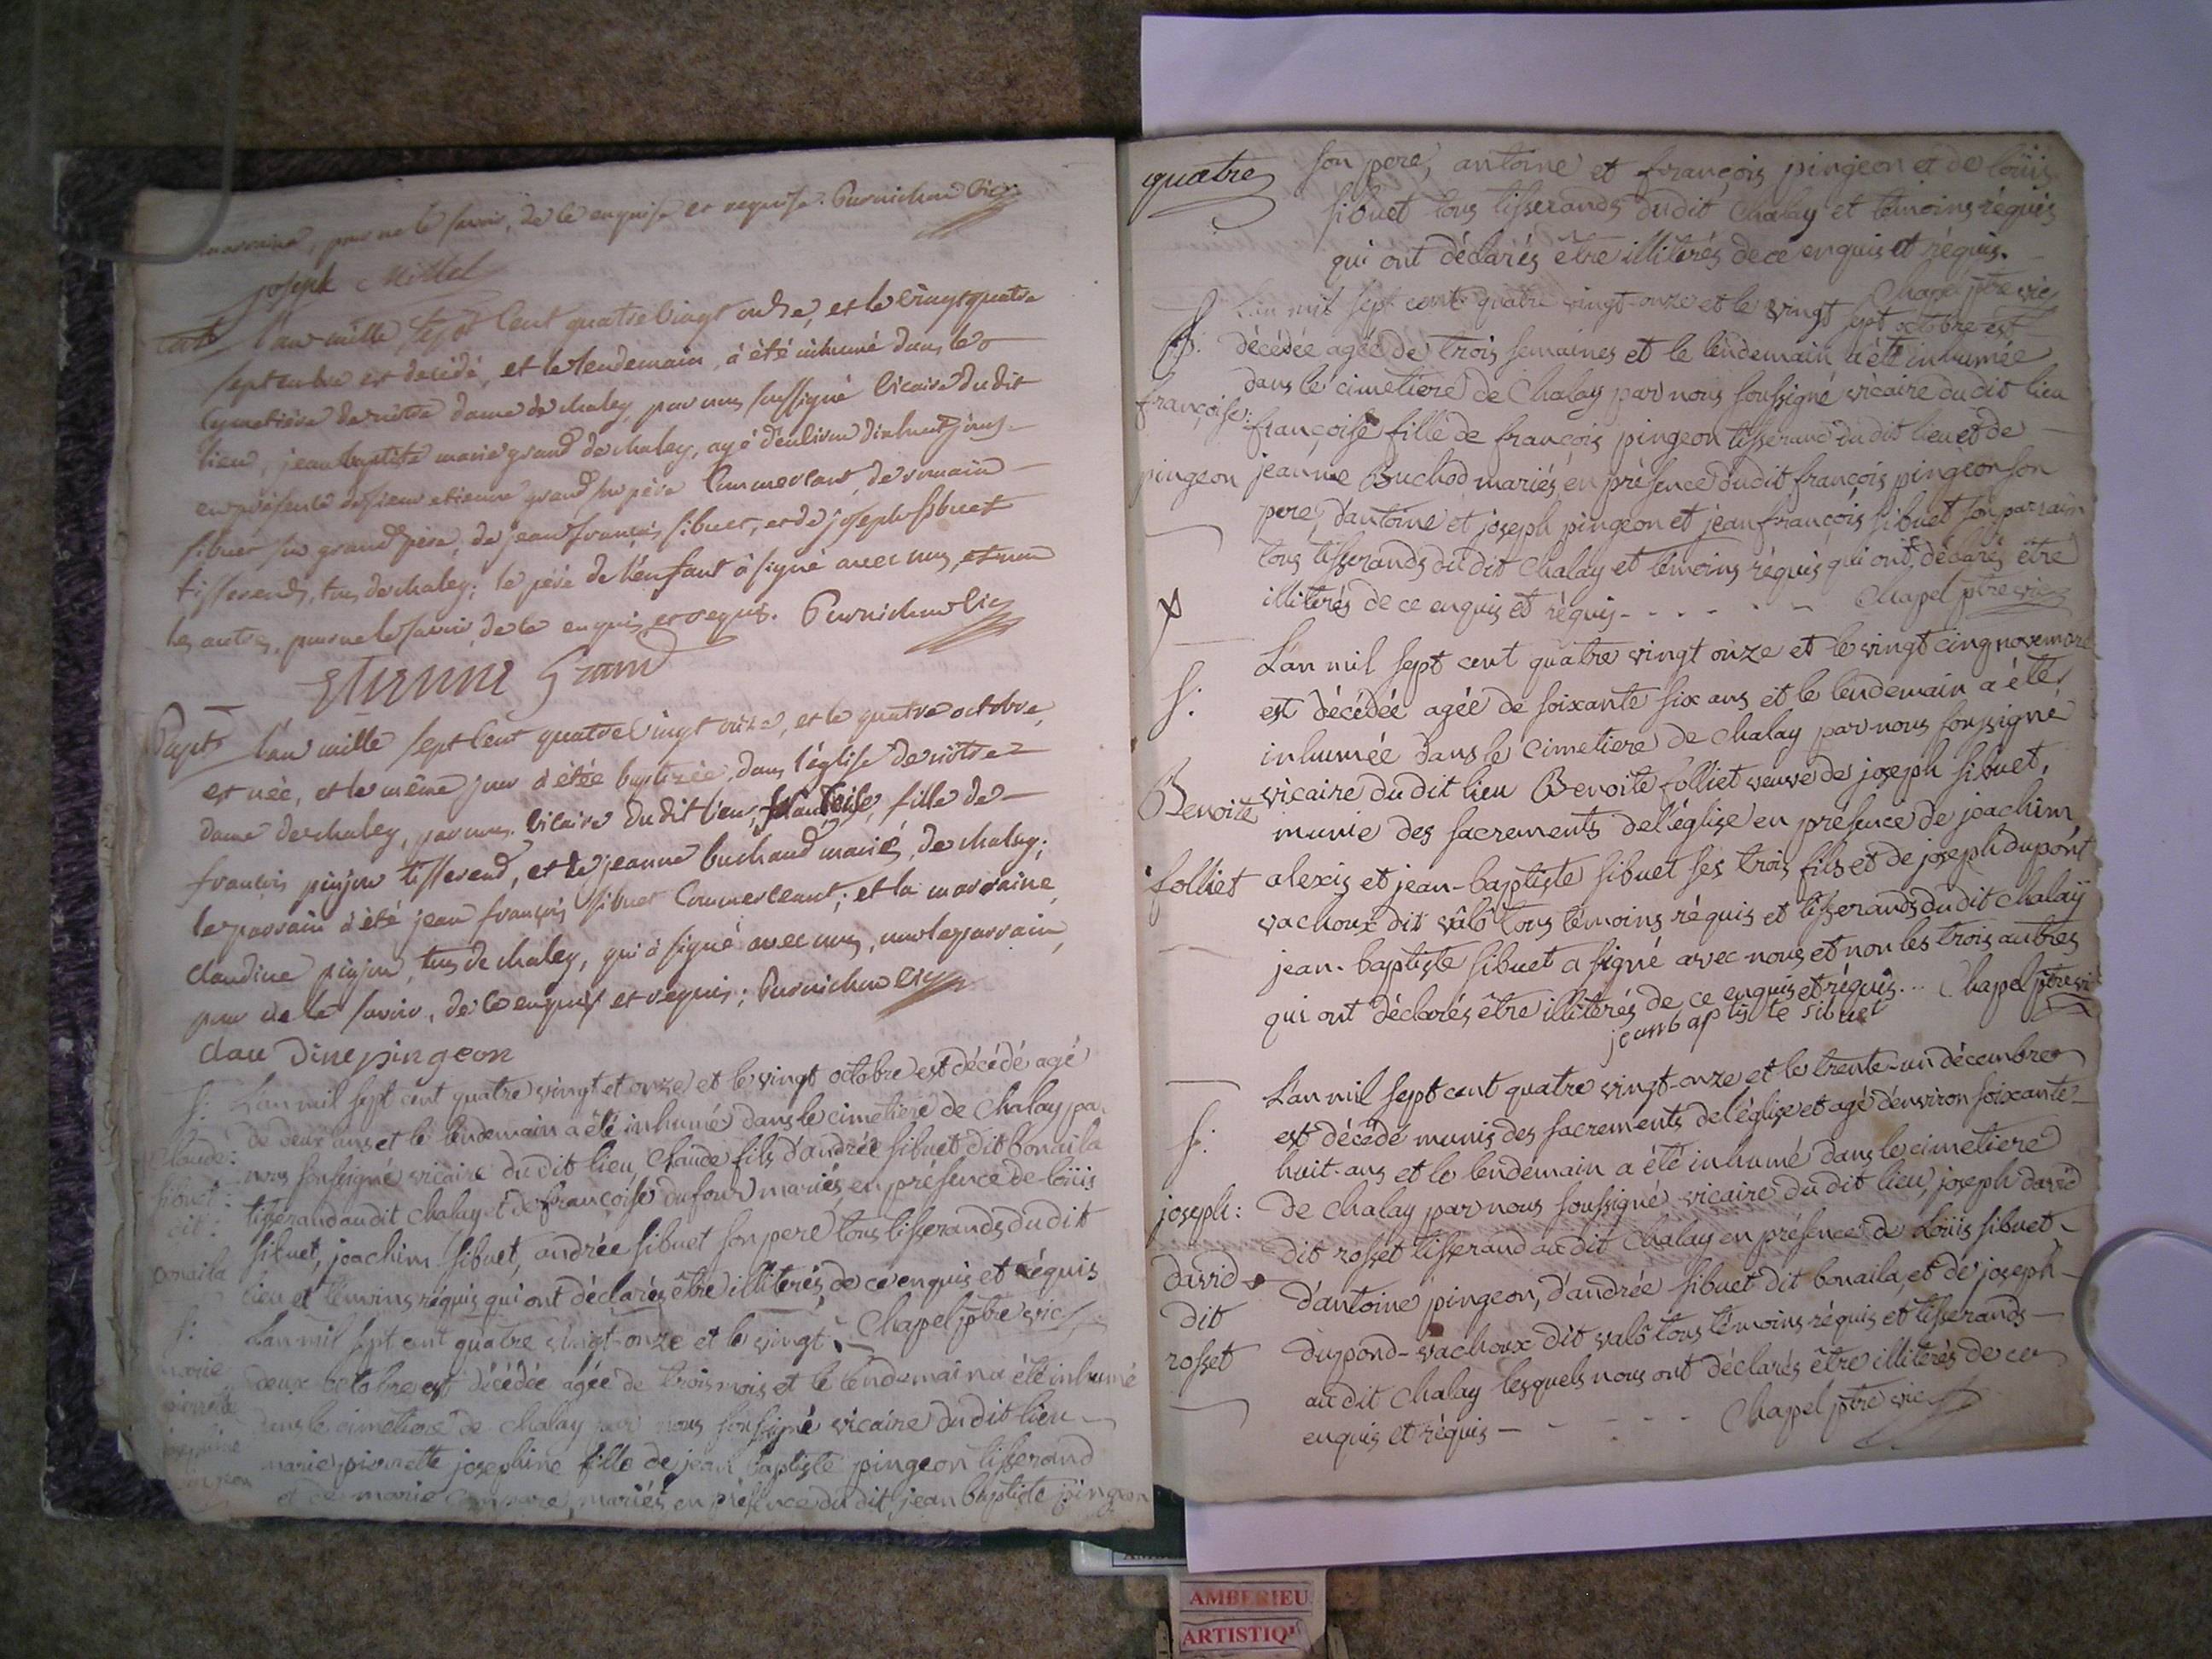 marraine, pour ne le savoir, de ce enquise et requise. Purnichon vic
joseph Millet
l'an mille sept cent quatre vingt onze, et le vingt quatre
septembre est decédé, et le lendemain, à été inhumé dans le
cymetière de nôtre dame de chaley, par nous soussigné vicaire du dit
lieu, jean baptiste marie grand de chaley, agé d'environ jours
en présence de sieur etienne grand son père commercant, de romain
sibuet son grand père, de jean françois sibuet, et de joseph sibuet
tisserends, tous de chaley; le père de l'enfant à signé avec nous, et non
les autres, pour ne le savoir de ce enquis et requis. Purnichon vic
Etienne Grand
Bapt
l'an mille sept cent quatre vingt onze, et le quatre octobre,
est née, et le même jour à étée baptizée, dans l'église de nôtre
dame de chaley, par nous vicaire du dit lieu, francoise, fille de
françois pinjon tisserend, et de jeanne buchaud mariés, de chaley;
le parrain à été jean françois sibuet commerceant; et la marraine,
claudine pinjon, tous de chaley, qui à signé avec nous, non le parrain,
pour ne le savoir, de ce enquis et requis; Purnichon vic
clau dine pingeon
S.
L'an mil sept cent quatre vingt et onze et le vingt octobre est décédé agé
de deux ans et le lendemain a été inhumé dans le cimetiere de Chalay par
Claude:
nous soussigné vicaire du dit lieu, Claude fils d'andrée sibuet dit bonaila
sibuet:
tisserand au dit chalay et de françoise dufour mariés en présence de loüis
dit:
sibuet, joachim sibuet, andrée sibuet son pere tous tisserands du dit
bonaila
lieu et témoins réquis qui ont déclarés être illiterés de ce enquis et réquis
Chapel ptre vic
S:
L'an mil sept cent quatre vingt-onze et le vingt
marie
deux octobre est décédée agée de trois mois et le lendemain a été inhumé
pierrette
dans le cimetiere de chalay par nous soussigné vicaire du dit lieu
josephine
marie pierrette josephine fille de jean baptiste pingeon tisserand
pingeon
et de marie mariés en présence du dit jean baptiste pingeon
quatre
son pere, antoine et françois pingeon et de loüis
sibuet tous tisserands du dit Chalay et témoins réquis
qui ont déclarés être illiterés de ce enquis et réquis.
Chapel ptre vic
S.
L'an mil sept cent quatre vingt-onze et le vingt sept octobre est
décédée agée de trois semaines et le lendemain a été inhumée
dans le cimetiere de Chalay par nous soussigné vicaire du dit lieu
françoise:
françoise fille de françois pingeon tisserand du dit lieu et de
pingeon
jeanne Buchod mariés en présence du dit françois pingeon son
pere, d'antoine et joseph pingeon et jean françois sibuet son parrain
tous tisserands du dit Chalay et témoins réquis qui ont déclarés être
illiterés de ce enquis et réquis - - - - - Chapel ptre vic
L'an mil sept cent quatre vingt onze et le vingt cinq novembre
S:
est décédée agée de soixante six ans et le lendemain a été
inhumée dans le cimetiere de chalay par nous soussigné
Benoite
vicaire du dit lieu Benoite folliet veuve de joseph sibuet,
munie des sacrements de l'église en présence de joachim,
folliet
alexis et jean-baptiste sibuet ses trois fils et de joseph dupont
vachoux dit vâlô tous témoins réquis et tisserands du dit chalay
jean-baptiste sibuet a signé avec nous et non les trois autres
qui ont déclarés être illiterés de ce enquis et réquis... Chapel ptre vic
jeanbaptiste sibuet
L'an mil sept cent quatre vingt-onze et le trente-un décembre
S:
est décédé munis des sacrements de l'église et agé d'environ soixante
huit-ans et le lendemain a été inhumé dans le cimetiere
joseph:
de Chalay par nous soussigné vicaire du dit lieu, joseph david
dit rosset tisserand au dit Chalay en présence de Loüis sibuet
david
d'antoine pingeon, d'andrée sibuet dit bonaila, et de joseph
dit
dupond-vachoux dit valô tous témoins réquis et tisserands
rosset
au dit Chalay lesquels nous ont déclarés être illiterés de ce
enquis et réquis - - - - Chapel ptre vic
AMBERIEU
ARTISTIQ